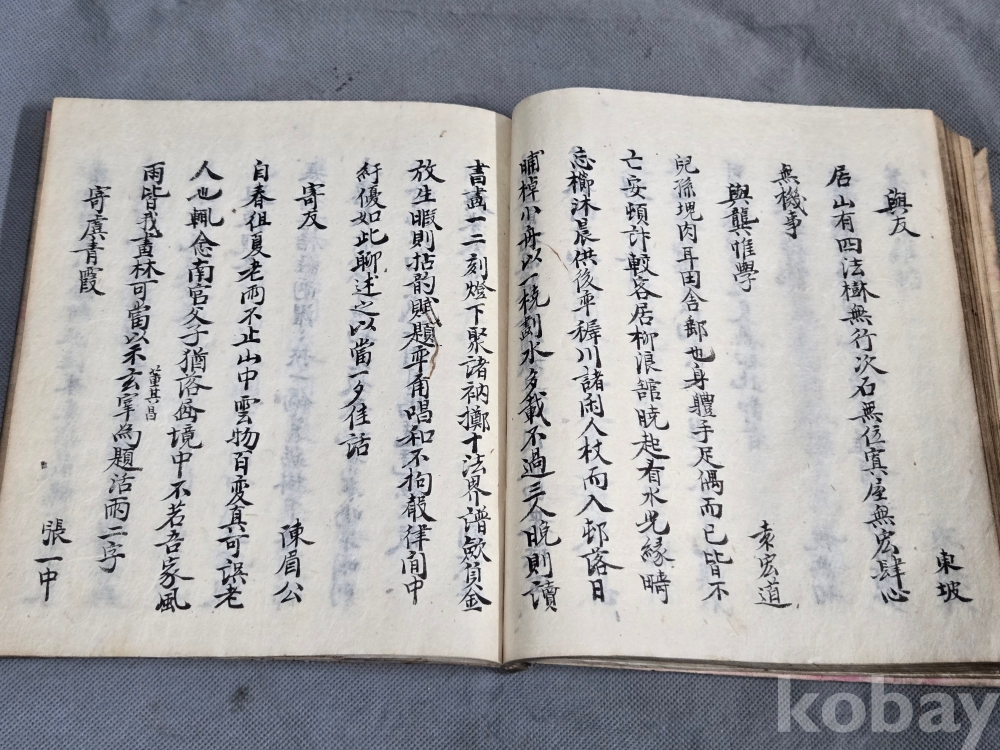 與友
東坡
居山有四法樹無行次石無位寘屋無宏肆心
無機事
與龔惟學
袁宏道
兒孫塊肉耳田舍郵也身軆手足偶而已皆不
亡妄頓詐較客居柳浪舘曉起看水光緣疇
忘櫛沐晨供後率稺川諸閑人杖而入邨落日
晡棹小舟以一橈劃水多載不過三人晚則讀
書畫一二刻燈下聚諸衲擲十法界譜歛負金
放生暇則拈韵賦題率爾唱和不拘聲律閒中
紆優如此聊述之以當一夕佳話
寄友
陳眉公
自春徂夏老雨不止山中雲物百変真可誤老
人也輒念南宮父子猶落画境中不若吾家風
雨皆我畫林可當以示玄宰為題活雨二字
董其昌
寄虞青霞
張一中
kobay